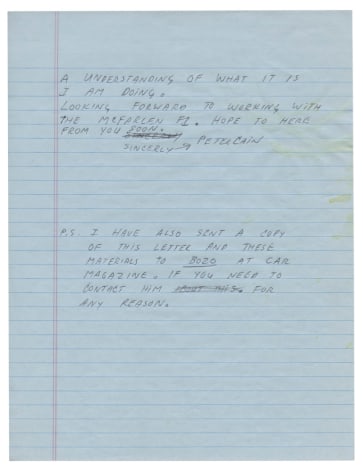 A UNDERSTANDING OF WHAT IT IS
I AM DOING.
LOOKING FORWARD TO WORKING WITH
THE MCFARLEN F1. HOPE TO HERE
FROM YOU SOON.
SINCERLY PETER CAIN
P.S. I HAVE ALSO SENT A COPY
OF THIS LETTER AND THESE
MATERIALS TO BOZO AT CAR
MAGAZINE. IF YOU NEED TO
CONTACT HIM FOR
ANY REASON.